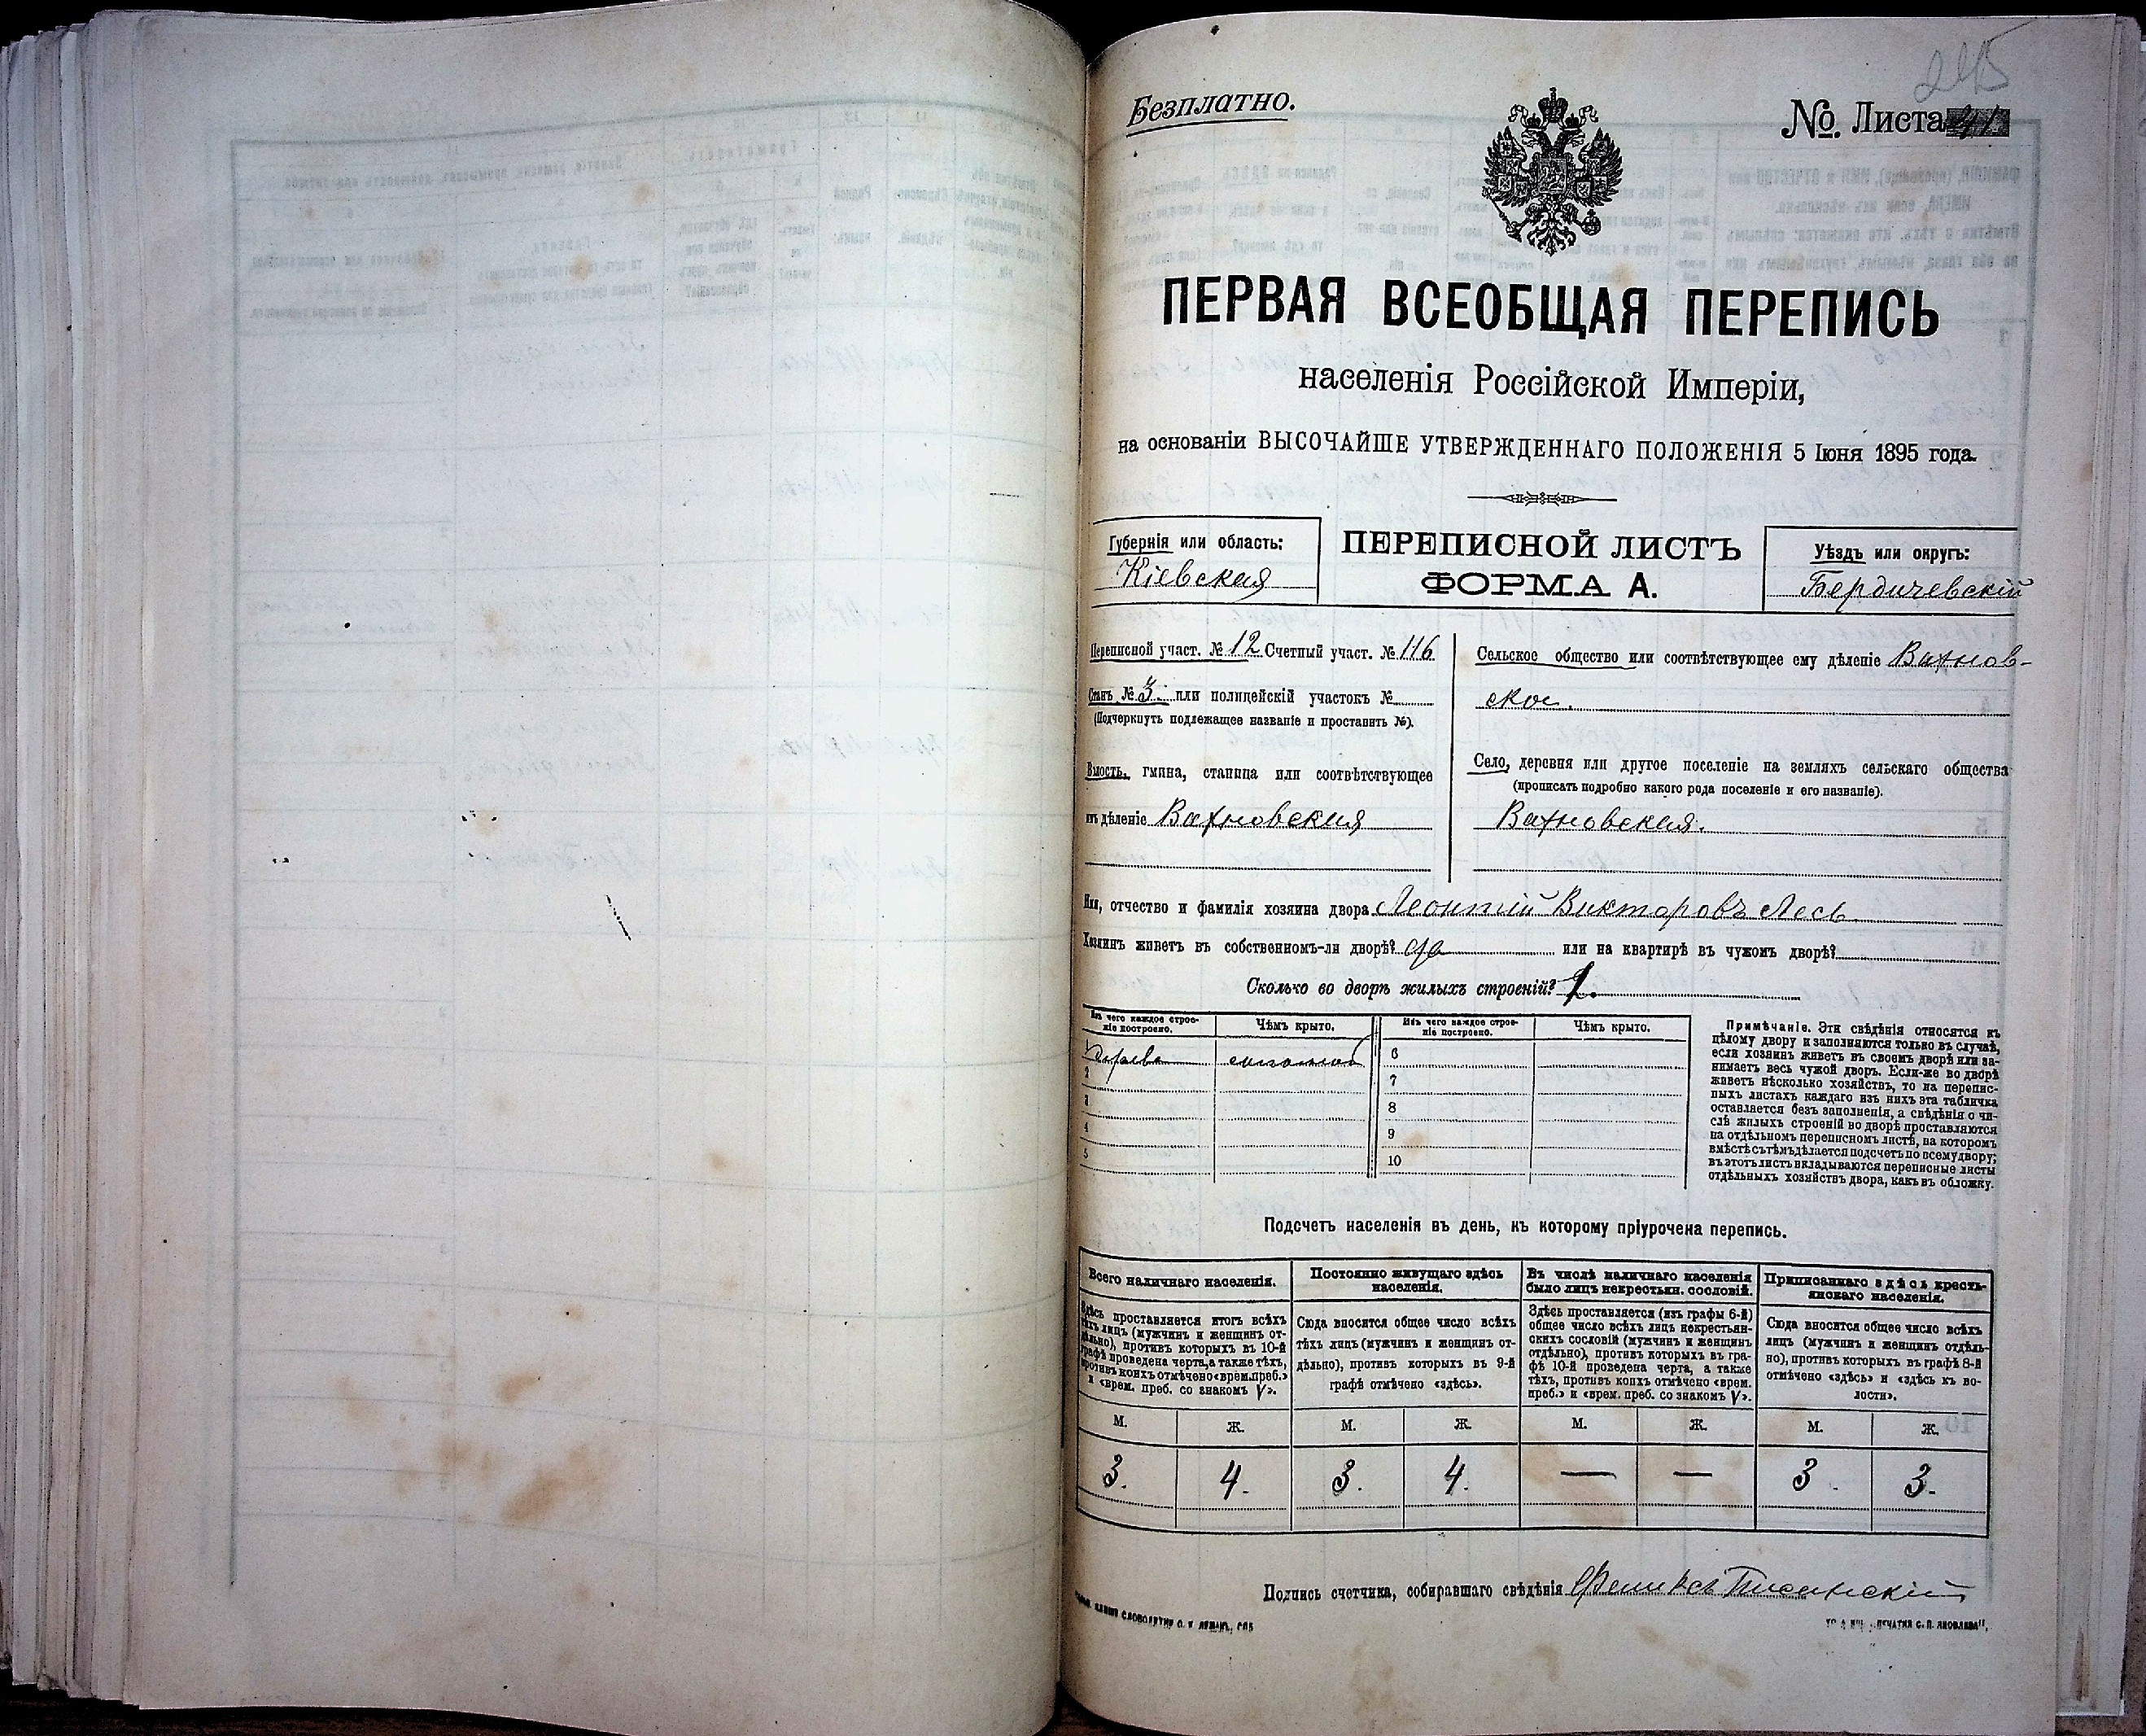 245
Безплатно.
№ Листа 41
ПЕРВАЯ ВСЕОБЩАЯ ПЕРЕПИСЬ
населенія Россійской Имперіи,
на основаніи ВЫСОЧАЙШЕ УТВЕРЖДЕННАГО ПОЛОЖЕНІЯ 5 Іюня 1895 года.
Губернія или область:
Кіевская
ПЕРЕПИСНОЙ ЛИСТЪ
ФОРМА А.
Уѣздъ или округъ:
Бердичевскій
Переписной участ. № 12 Счетный участ. № 116
Станъ № 3. или полицейскій участокъ №
(Подчеркнуть подлежащее названіе и проставить №).
Волость, гмина, станица или соотвѣтствующее
имъ дѣленіе Вахновская
Сельское общество или соотвѣтствующее ему дѣленіе Вахнов-
ское.
Село, деревня или другое поселеніе на земляхъ сельскаго общества
(прописать подробно какого рода поселеніе и его названіе).
Вахновская.
Имя, отчество и фамилія хозяина двора Леонтій Викторовъ Лесь
Хозяинъ живетъ въ собственномъ-ли дворѣ? да или на квартирѣ въ чужомъ дворѣ?
Сколько во дворѣ жилыхъ строеній? 1.
Изъ чего каждое строе-
ніе построено.
Чѣмъ крыто.
Изъ чего каждое строе-
ніе построено.
Чѣмъ крыто.
1 дерева соломой 6
2 7
3 8
4 9
5 10
Примѣчаніе. Эти свѣдѣнія относятся къ
цѣлому двору и заполняются только въ случаѣ,
если хозяинъ живетъ въ своемъ дворѣ или за-
нимаетъ весь чужой дворъ. Если-же во дворѣ
живетъ нѣсколько хозяйствъ, то на перепис-
ныхъ листахъ каждаго изъ нихъ эта табличка
оставляется безъ заполненія, а свѣдѣнія о чи-
слѣ жилыхъ строеній во дворѣ проставляются
на отдѣльномъ переписномъ листѣ, на которомъ
вмѣстѣ съ тѣмъ дѣлается подсчетъ по всему двору;
въ этотъ листъ вкладываются переписные листы
отдѣльныхъ хозяйствъ двора, какъ въ обложку.
Подсчетъ населенія въ день, къ которому пріурочена перепись.
Всего наличнаго населенія.
Здѣсь проставляется итогъ всѣхъ
тѣхъ лицъ (мужчинъ и женщинъ от-
дѣльно), противъ которыхъ въ 10-й
графѣ проведена черта, а также тѣхъ,
противъ коихъ отмѣчено «врем. преб.»
и «врем. преб. со знакомъ V».
Постоянно живущаго здѣсь
населенія.
Сюда вносится общее число всѣхъ
тѣхъ лицъ (мужчинъ и женщинъ от-
дѣльно), противъ которыхъ въ 9-й
графѣ отмѣчено «здѣсь».
Въ числѣ наличнаго населенія
было лицъ некрестьян. сословій.
Здѣсь проставляется (изъ графы 6-й)
общее число всѣхъ лицъ некрестьян-
скихъ сословій (мужчинъ и женщинъ
отдѣльно), противъ которыхъ въ гра-
фѣ 10-й проведена черта, а также
тѣхъ, противъ коихъ отмѣчено «врем.
преб.» и «врем. преб. со знакомъ V».
Приписаннаго здѣсь кресть-
янскаго населенія.
Сюда вносится общее число всѣхъ
лицъ (мужчинъ и женщинъ отдѣль-
но), противъ которыхъ въ графѣ 8-й
отмѣчено «здѣсь» и «здѣсь къ во-
лости».
М. Ж. М. Ж. М. Ж. М. Ж.
3. 4. 3. 4. — — 3. 3.
Подпись счетчика, собиравшаго свѣдѣнія Феликсъ